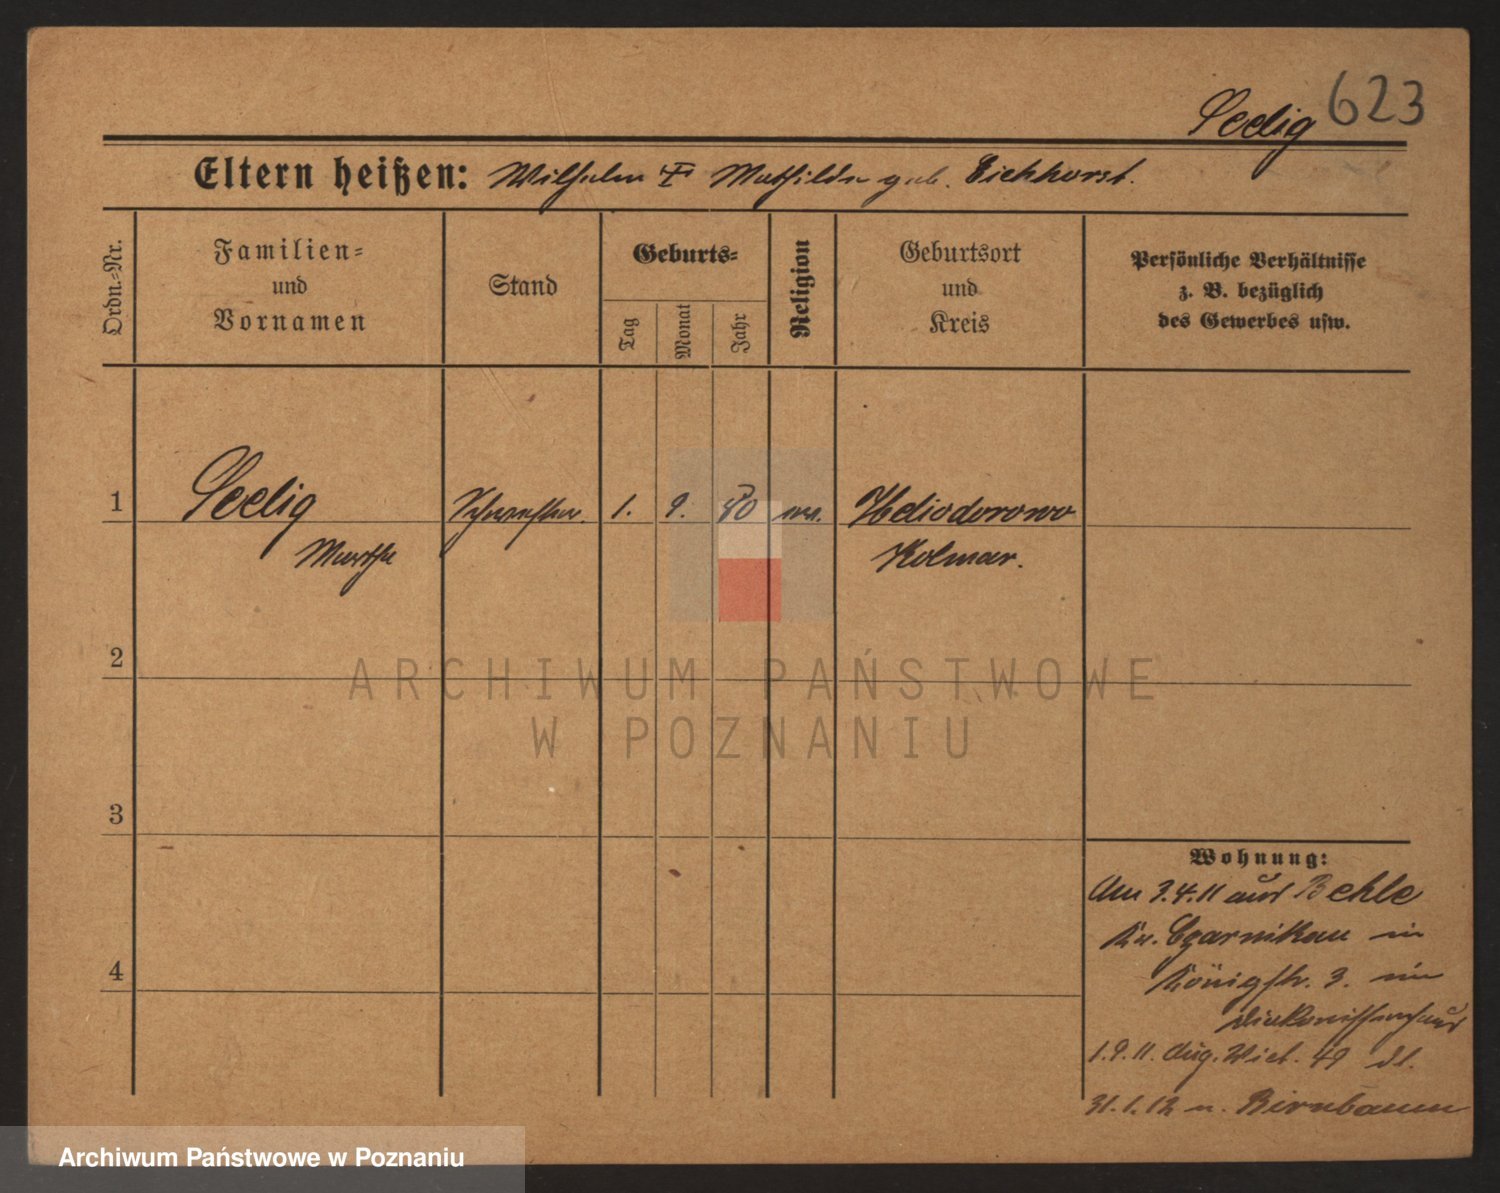 Seelig 623
Eltern heißen: Wilhelm Mathilde geb. Eichhorst.
Ordn.-Nr.
Familien-
und
Vornamen
Stand
Geburts-
Tag
Monat
Jahr
Religion
Geburtsort
und
Kreis
Persönliche Verhältnisse
z. B. bezüglich
des Gewerbes usw.
1 Seelig Schwester. 1. 9. 80 ev. Heliodorowo
Martha Kolmar.
2
ARCHIWUM PAŃSTWOWE
W POZNANIU
3
Wohnung:
Am 3.4.11 aus Behle
Kr. Czarnikau in
4
Königstr. 3. im
Diakonissenhaus
1.9.11. Aug. Vict. 49 
31.1.12 n. Birnbaum
Archiwum Państwowe w Poznaniu